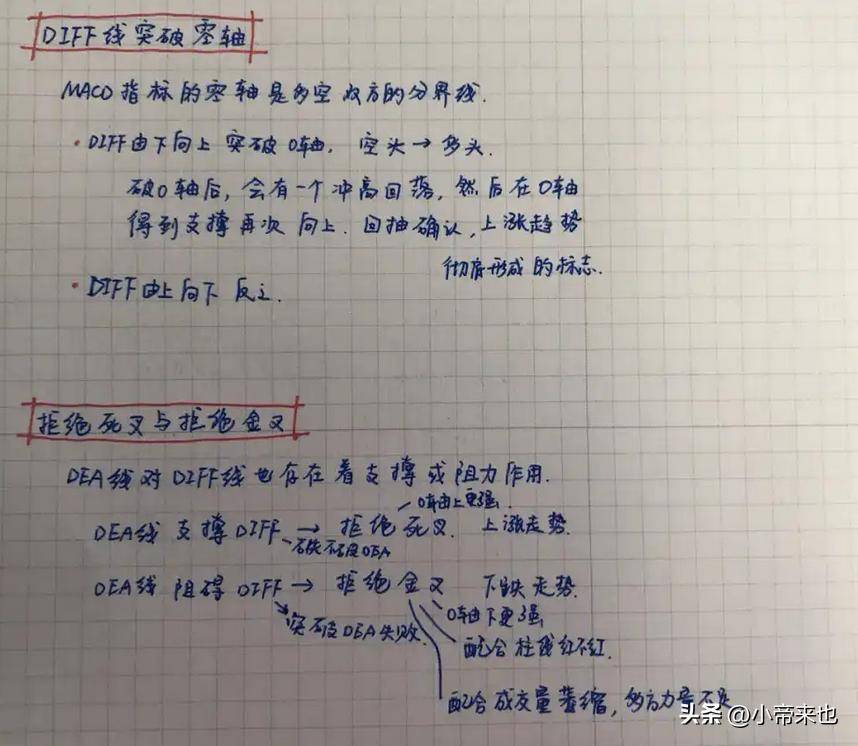 DIFF线突破零轴
MACD指标的零轴是多空双方的分界线.
·DIFF由下向上突破0轴, 空头→多头.
破0轴后, 会有一个冲高回落, 然后在0轴
得到支撑再次向上. 回抽确认, 上涨趋势
彻底形成的标志.
·DIFF由上向下 反之.
拒绝死叉与拒绝金叉
DEA线对DIFF线也存在着支撑或阻力作用.
0轴上更强.
DEA线 支撑DIFF → 拒绝死叉. 上涨走势.
不破DEA
DEA线 阻碍DIFF → 拒绝金叉 下跌走势.
0轴下更强
突破DEA失败.
配合柱线红不红.
配合成交量萎缩, 多方力量不足
头条 @小帝来也